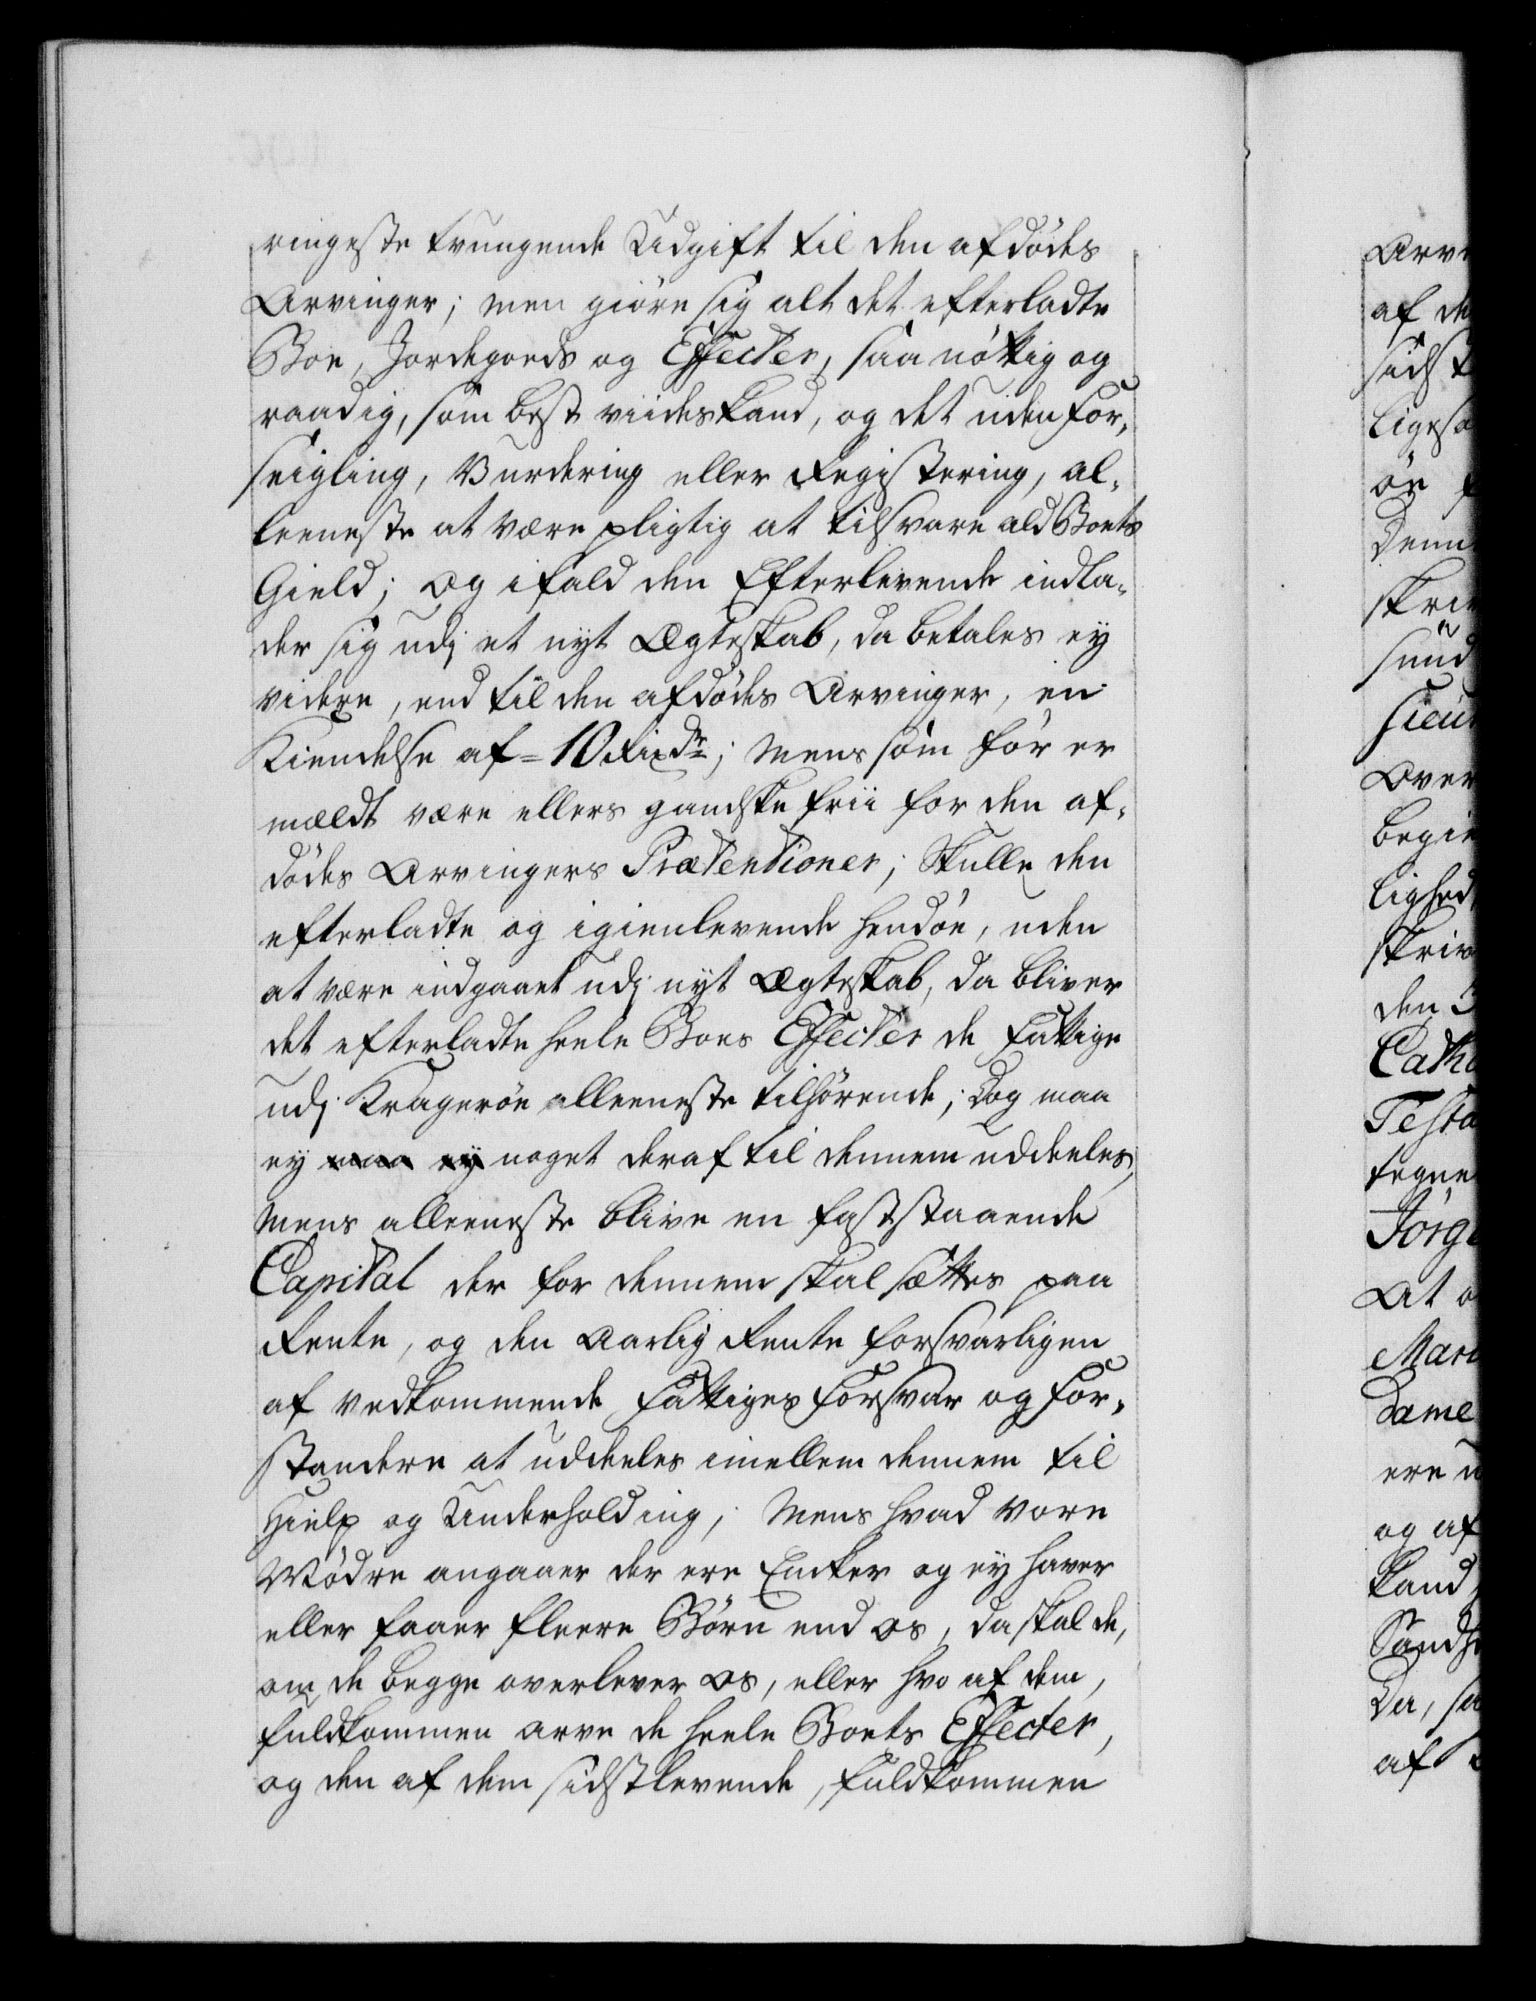 ringeste tvungende Udgift til den afdødes
Arvinger; men giøre sig alt det efterladte
Boe, Jordegoeds og Effecter, saa nøttig og
raadig, som best viides kand, og det uden For-
seigling, Vurdering eller Registering, al-
leeneste at være pligtig at tilsvare ald Boets
Gield; Og ifald den Efterlevende indla-
der sig udj et nyt Ægteskab, da betales ey
videre, end til den afdødes Arvinger, en
Kiendelse af = 10 Rixdr; Mens som før er
meldt være ellers gandske frii for den af-
dødes Arvingers Prætentioner; Skulle den
efterladte og igienlevende hendøe, uden
at være indgaaet udj nyt Ægteskab, da bliver
det efterladte heele Boes Effecter de Fattige
udj Kragerøe alleeneste tilhørende; Dog maa
ey maa ey noget deraf til dennem uddeeles,
Mens alleeneste blive en faststaaende
Capital der for dennem skal sættes paa
Rente, og den Aarlig Rente forsvarligen
af vedkommende Fattiges Forsvar og For-
standere at uddeeles imellem dennem til
Hielp og Underholding; Mens hvad vore
Mødre angaaer der ere Encker og ey haver
eller faaer fleere Børn end os, da skal de,
om de begge overlever os, eller hvo af dem,
fuldkommen arve de heele Boets Effecter,
og den af dem sidstlevende, fuldkommen
Arv
af de
sidst
ligesa
øe
Denn
skriv
sund
sieur
Over
begie
lighed
skriv
den 3
Cath
Testa
tegne
Jørge
At o
Mari
Dame
ere u
og af
kand
Sandh
Da, sa
af